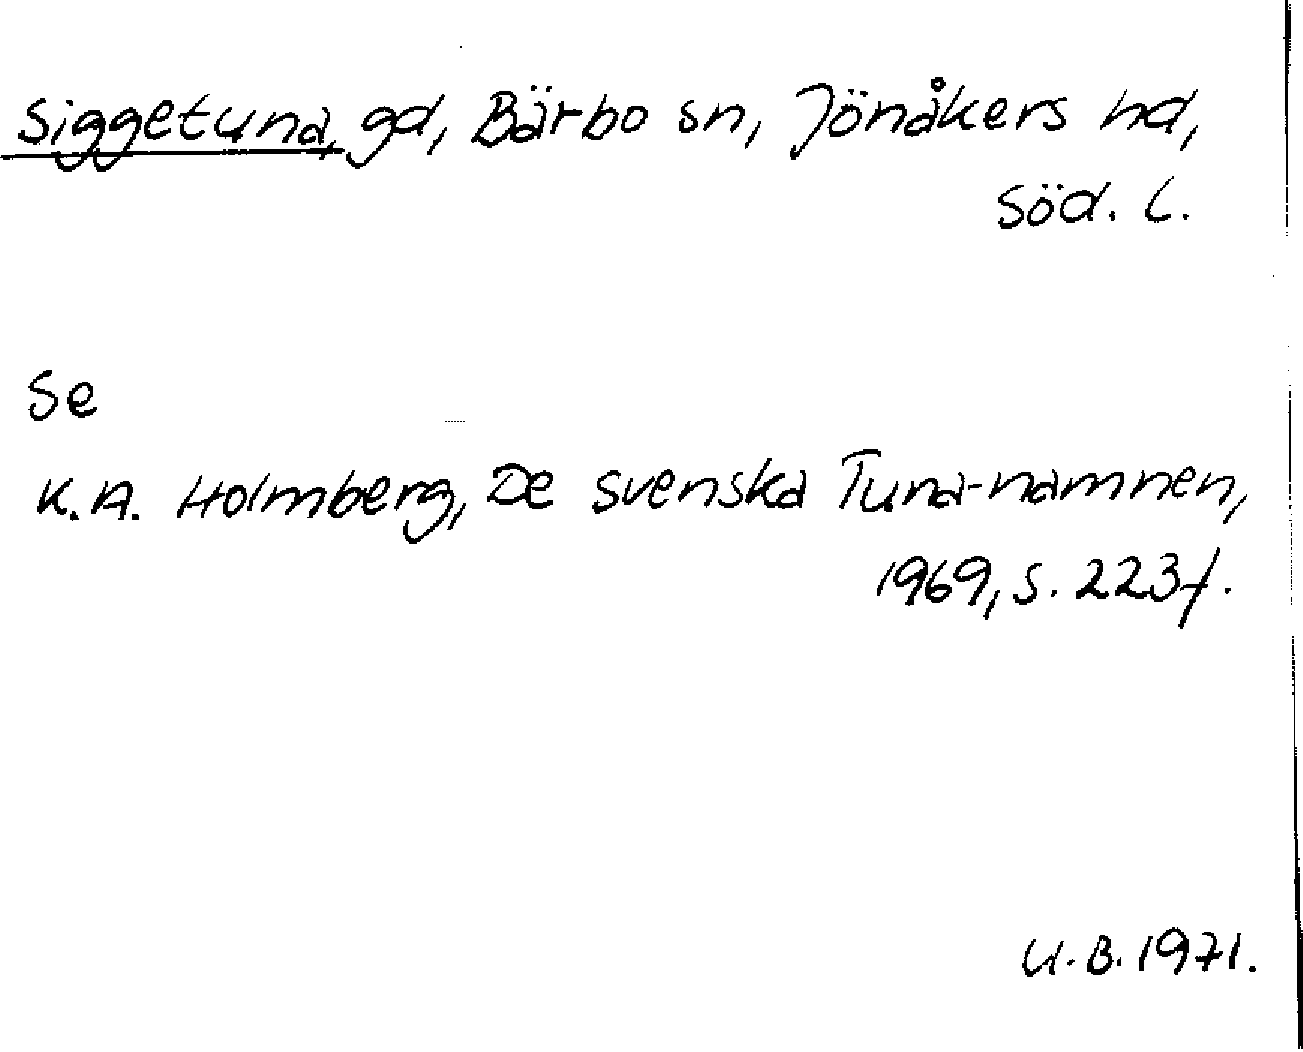 Siggetuna, gd, Bärbo sn, Jönåkers hd,
Söd. l.
Se
K.A. Holmberg, De svenska Tuna-namnen,
1969, s. 223f.
U.B. 1971.